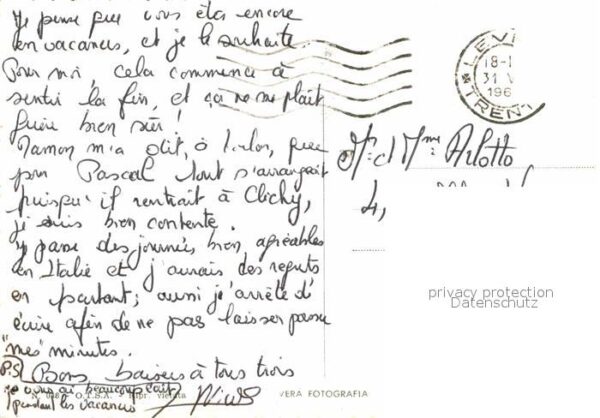 Je pense que vous êtes encore
en vacances, et je le souhaite.
Pour moi, cela commence à
sentir la fin, et ça ne me plaît
guère bien sûr!
Maman m'a dit, à Toulon, que
pour Pascal tout s'arrangeait
puisqu'il rentrait à Clichy,
je suis bien contente.
Je passe des journées bien agréables
en Italie et j'aurais des regrets
en partant; aussi j'arrête d'
écrire afin de ne pas laisser passer
"mes" minutes.
Bons baisers à tous trois
P.S. je vous ai beaucoup écrit
pendant les vacances
O.T.S.A. - Ripr. vietata
VERA FOTOGRAFIA
LEV
18-1
31 V
196
TRENT
Mr et Mme Arlotto
4,
privacy protection
Datenschutz